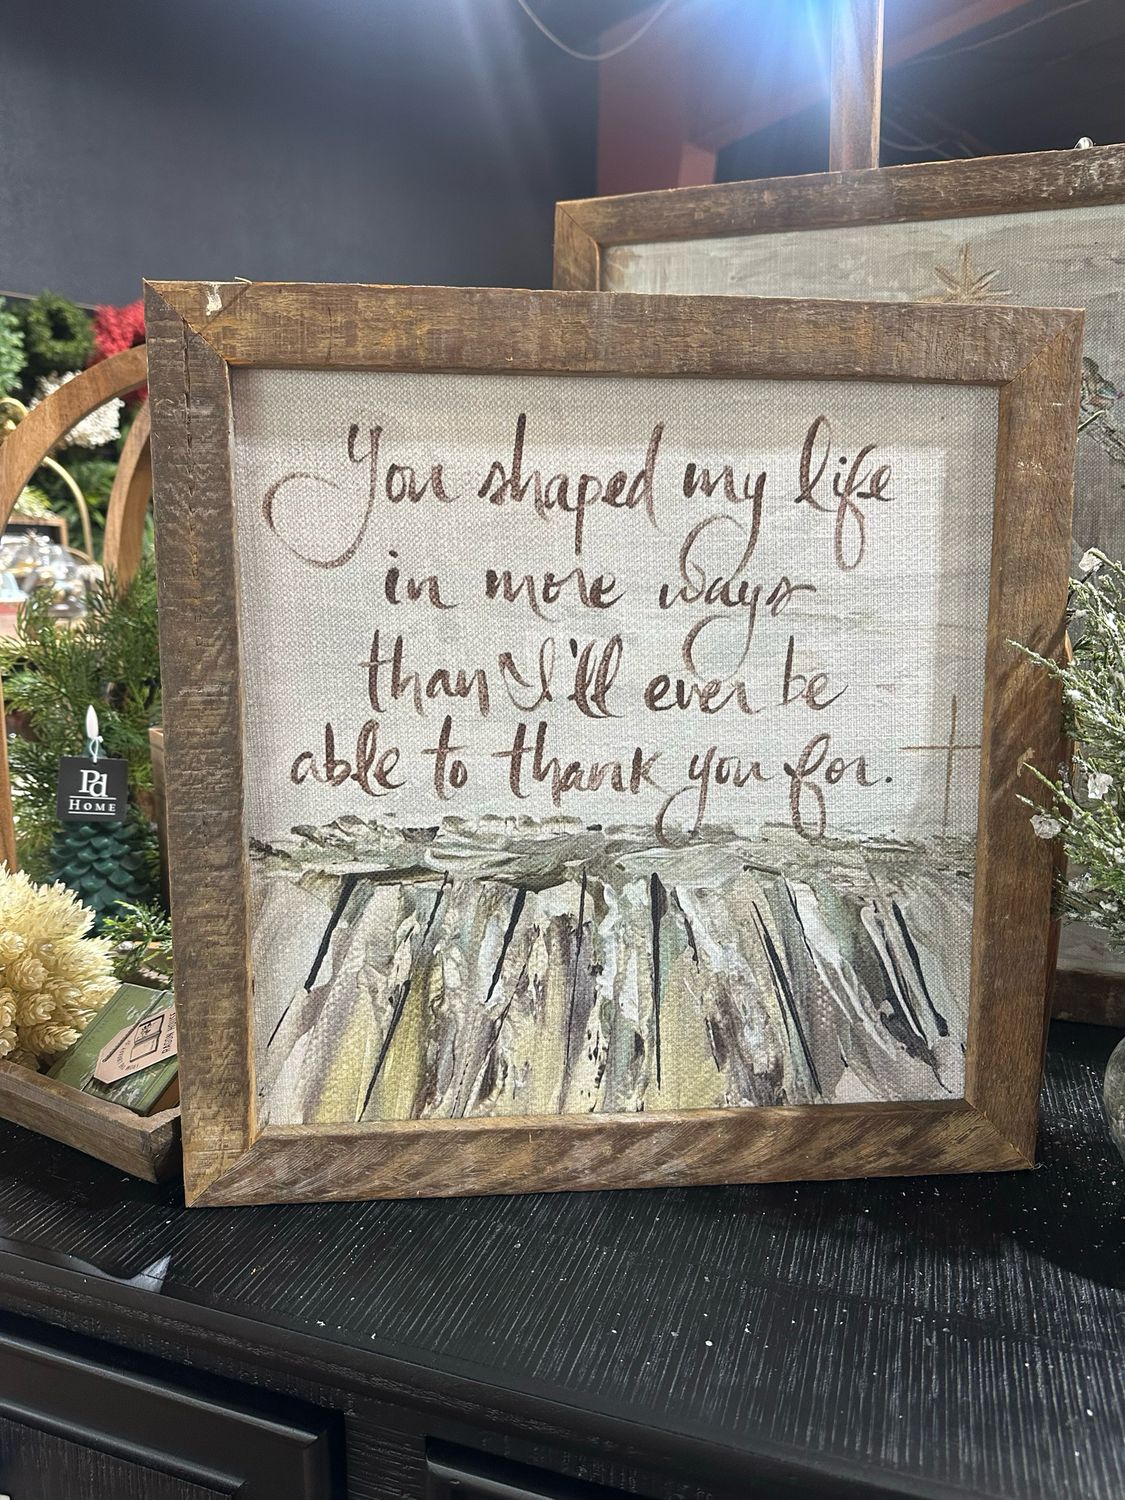 You shaped my life
in more ways
than I'll ever be
able to thank you for.
Pd
HOME